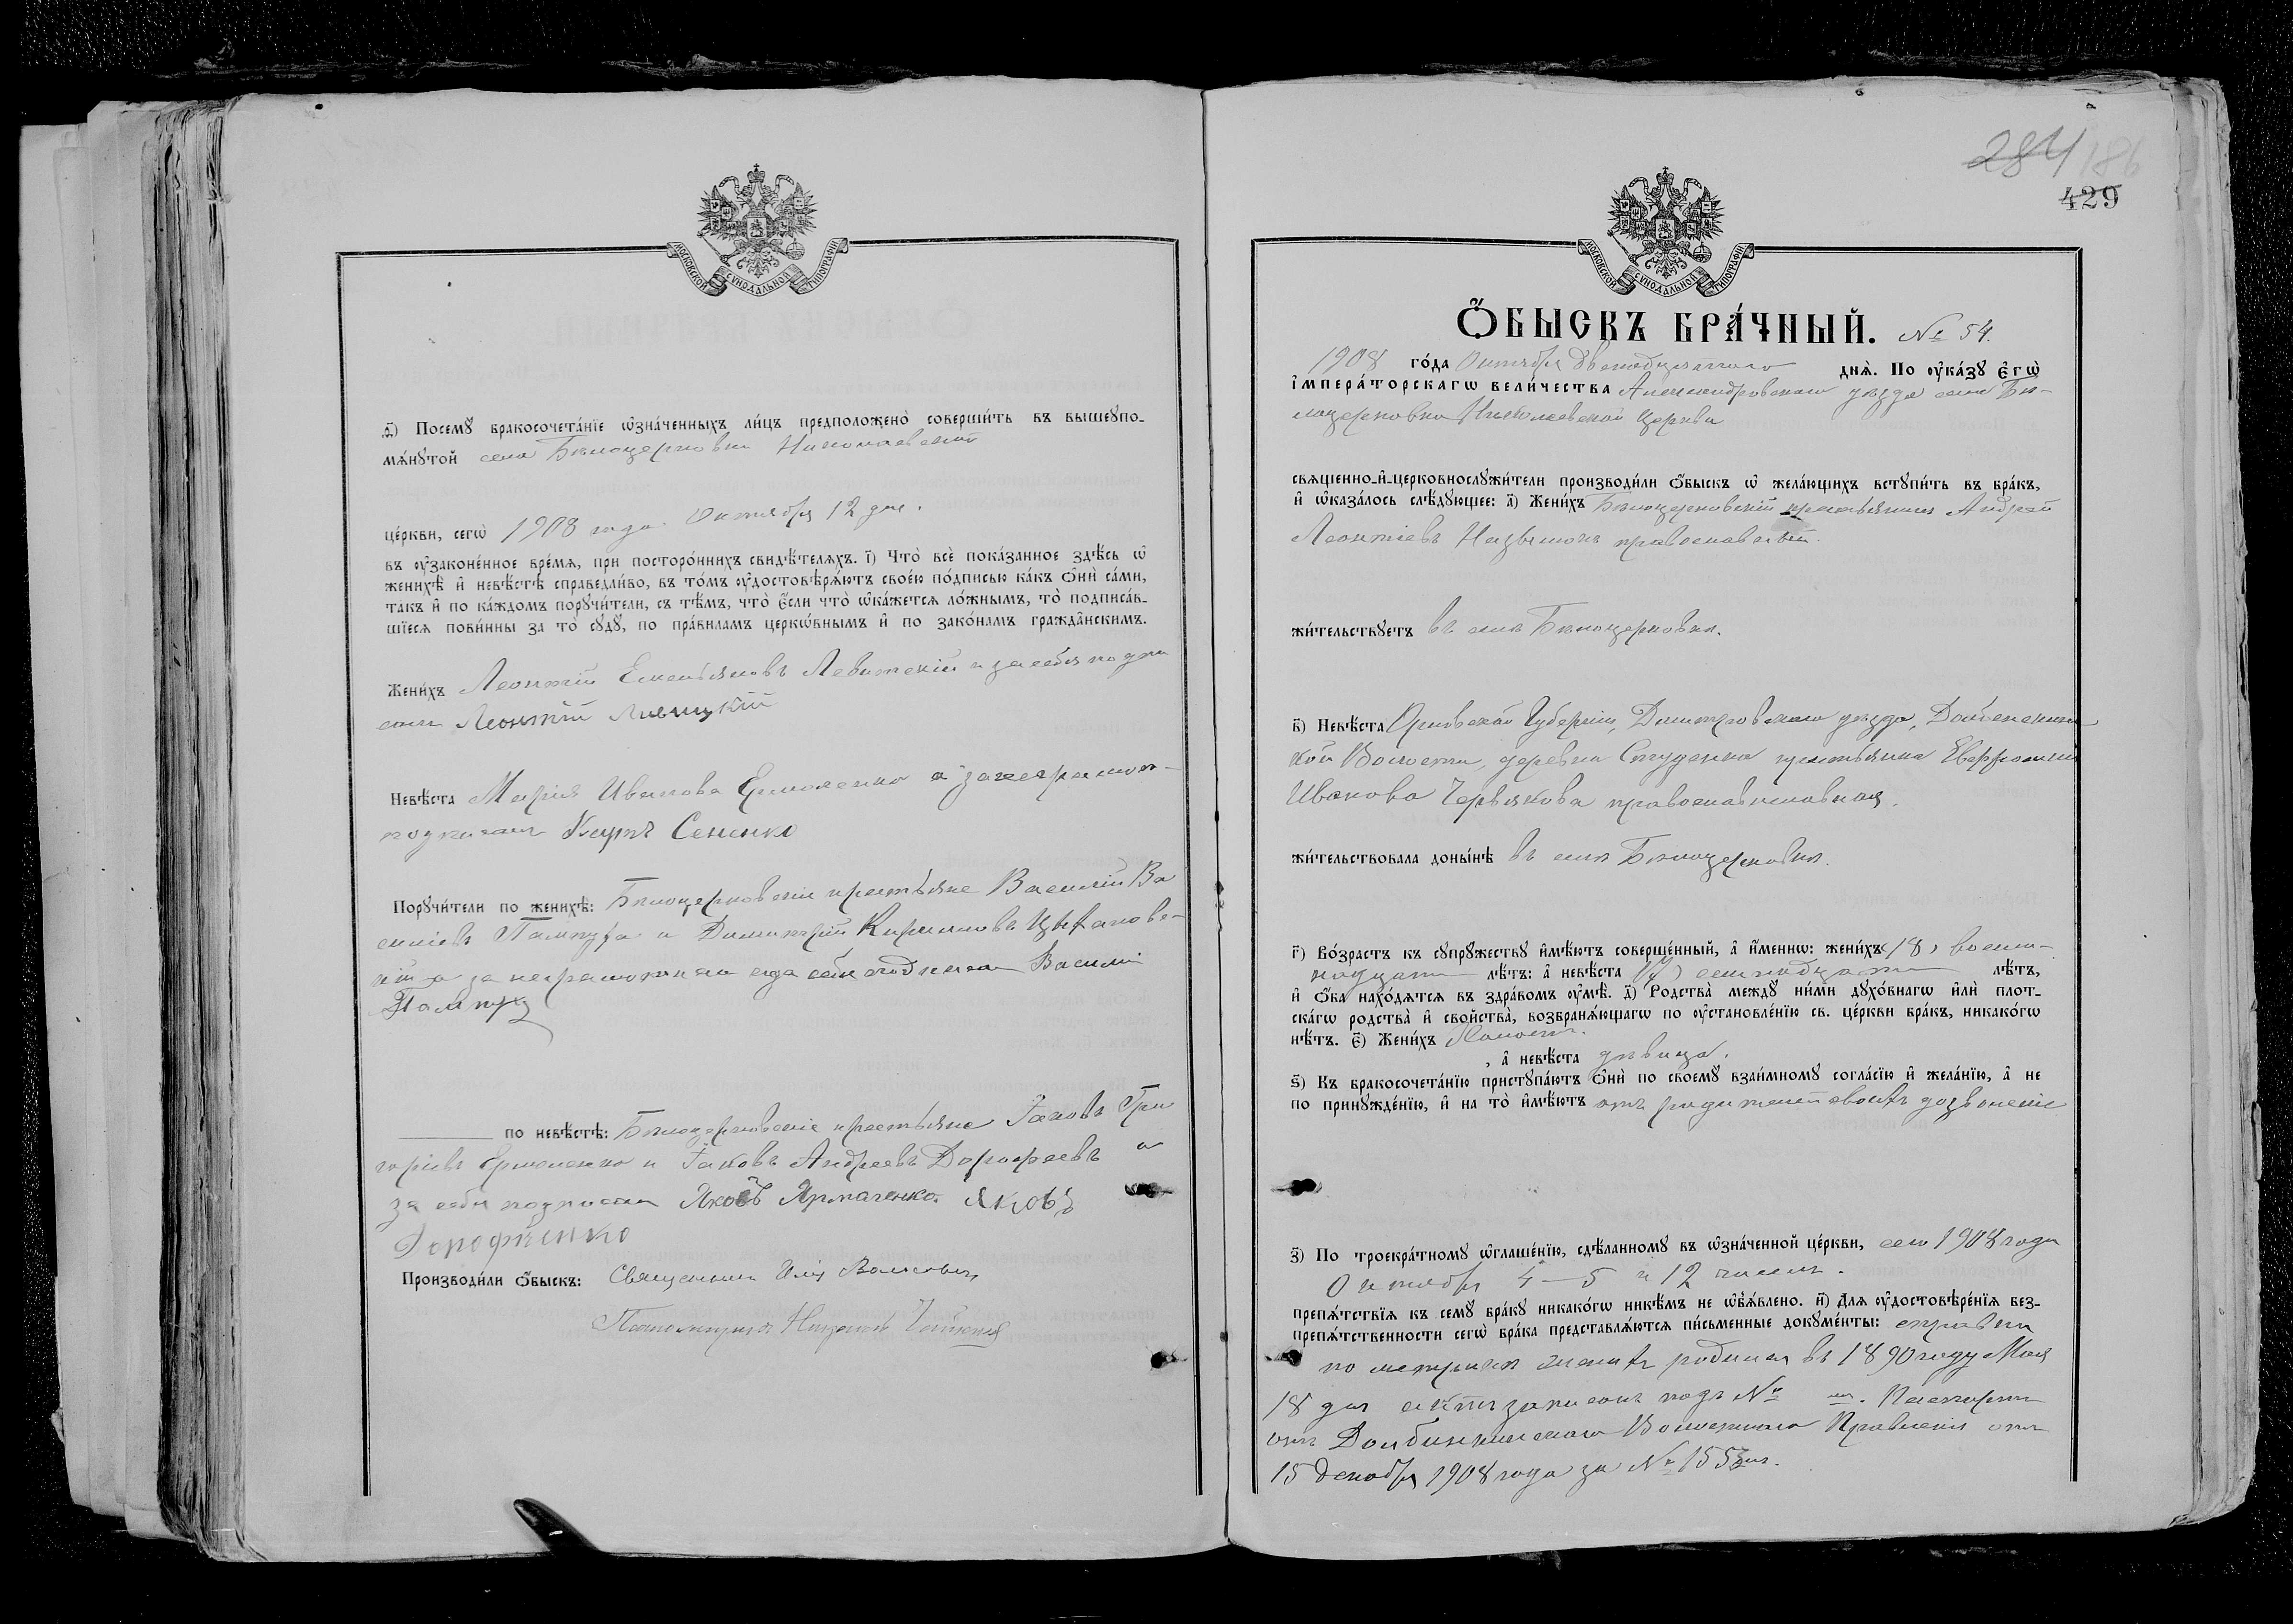 МОСКОВСКОЙ СУНОДАЛЬНОЙ ТИПОГРАФІИ
ѳ҃) Посемꙋ бракосочета́нїе ѡ҆зна́ченныхъ ли́цъ предположено̀ соверши́ть въ вышеꙋпо-
мѧ́нꙋтой села Бѣлоцерковки Николаевской
це́ркви, сегѡ̀ 1908 года Октября 12 дня.
въ ᲂу҆зако́ненное вре́мѧ, при посторо́ннихъ свидѣ́телѧхъ. і҃) Что̀ всѐ пока́занное здѣ́сь ѡ҆
женихѣ̀ и҆ невѣ́стѣ справедли́во, въ то́мъ ᲂу҆достовѣрѧ́ютъ свое́ю по́дписью ка́къ ѻ҆нѝ са́ми,
та́къ и҆ по ка́ждомъ порꙋчи́тели, съ тѣ́мъ, что̀ є҆́сли что̀ ѡ҆ка́жетсѧ ло́жнымъ, то̀ подписа́в-
шїесѧ пови́нны за то̀ сꙋдꙋ̀, по пра́виламъ церко́внымъ и҆ по зако́намъ гражда́нскимъ.
Жени́хъ Леонтій Емельяновъ Левитскій и за себя подпи
салъ Леонтій Ливицкій
Невѣ́ста Марія Иванова Ермоленко а за неграмот-
подписалъ Сененко
Порꙋчи́тели по женихѣ̀: Бѣлоцерковскіе крестьяне Василій Ва
силіевъ Пампура и Димитрій Кириловъ
а за неграмотнаго и за себя подписалъ Василій
Пампура
по невѣ́стѣ: Бѣлоцерковскіе крестьяне Іаковъ Гри
горіевъ Ермоленко и Іаковъ Андреевъ Дорофеевъ а
за себя подписали Яковъ Ярмаченко. Яковъ
Дорофѣенко
Производи́ли ѻ҆́быскъ: Священникъ Илія
Псаломщикъ
284 186
429
МОСКОВСКОЙ СУНОДАЛЬНОЙ ТИПОГРАФІИ
Ѻ҆́БЫСКЪ БРА́ЧНЫЙ. № 54.
1908 го́да Октября двенадцатаго днѧ̀. По ᲂу҆ка́зꙋ є҆гѡ̀
і҆мпера́торскагѡ вели́чества Александровскаго уѣзда села Бѣ-
лоцерковки Николаевской церкви
свѧще́нно-и҆-церковнослꙋжи́тели производи́ли ѻ҆́быскъ ѡ҆ жела́ющихъ встꙋпи́ть въ бра́къ,
и҆ ѡ҆каза́лось слѣ́дꙋющее: а҃) Жени́хъ Бѣлоцерковскій крестьянинъ Андрей
Леонтіевъ православный.
жи́тельствꙋетъ въ селѣ Бѣлоцерковкѣ.
в҃) Невѣ́ста Орловской Губерніи, Дмитровскаго уѣзда,
кой Волости, деревни Студенка крестьянка Евфросинія
Иванова Червякова православнисловная.
жи́тельствовала доны́нѣ въ селѣ Бѣлоцерковкѣ.
г҃) Во́зрастъ къ сꙋпрꙋ́жествꙋ и҆мѣ́ютъ соверше́нный, а҆ и҆́меннѡ: жени́хъ (18) восем-
надцати лѣ́тъ: а҆ невѣ́ста (17) семнадцати лѣ́тъ,
и҆ ѻ҆́ба нахо́дѧтсѧ въ здра́вомъ ᲂу҆мѣ̀. д҃) Родства̀ междꙋ̀ ни́ми дꙋхо́внагѡ и҆лѝ плот-
ска́гѡ родства̀ и҆ свойства̀, возбранѧ́ющагѡ по ᲂу҆становле́нїю св. це́ркви бра́къ, никако́гѡ
нѣ́тъ. є҃) Жени́хъ холостъ.
, а҆ невѣ́ста дѣвица.
ѕ҃) Къ бракосочета́нїю пристꙋпа́ютъ ѻ҆нѝ по своемꙋ̀ взаи́мномꙋ согла́сїю и҆ жела́нїю, а҆ не
по принꙋжде́нїю, и҆ на то̀ и҆мѣ́ютъ отъ родителей своихъ дозволеніе
з҃) По троекра́тномꙋ ѡ҆глаше́нїю, сдѣ́ланномꙋ въ ѡ҆зна́ченной це́ркви, сего 1908 года
Октября 4–5 и 12 числа.
препѧ́тствїѧ къ семꙋ̀ бра́кꙋ никако́гѡ никѣ́мъ не ѡ҆б̾ѧ́влено. и҃) Длѧ ᲂу҆достовѣре́нїѧ без-
препѧ́тственности сегѡ̀ бра́ка представлѧ́ютсѧ пи́сьменные докꙋме́нты: справка
по метрикѣ женихъ родился въ 1890 году Мая
18 дня актъ записанъ подъ № Паспортъ
отъ Волостнаго Правленія отъ
15 Декабря 1908 года за № 1553